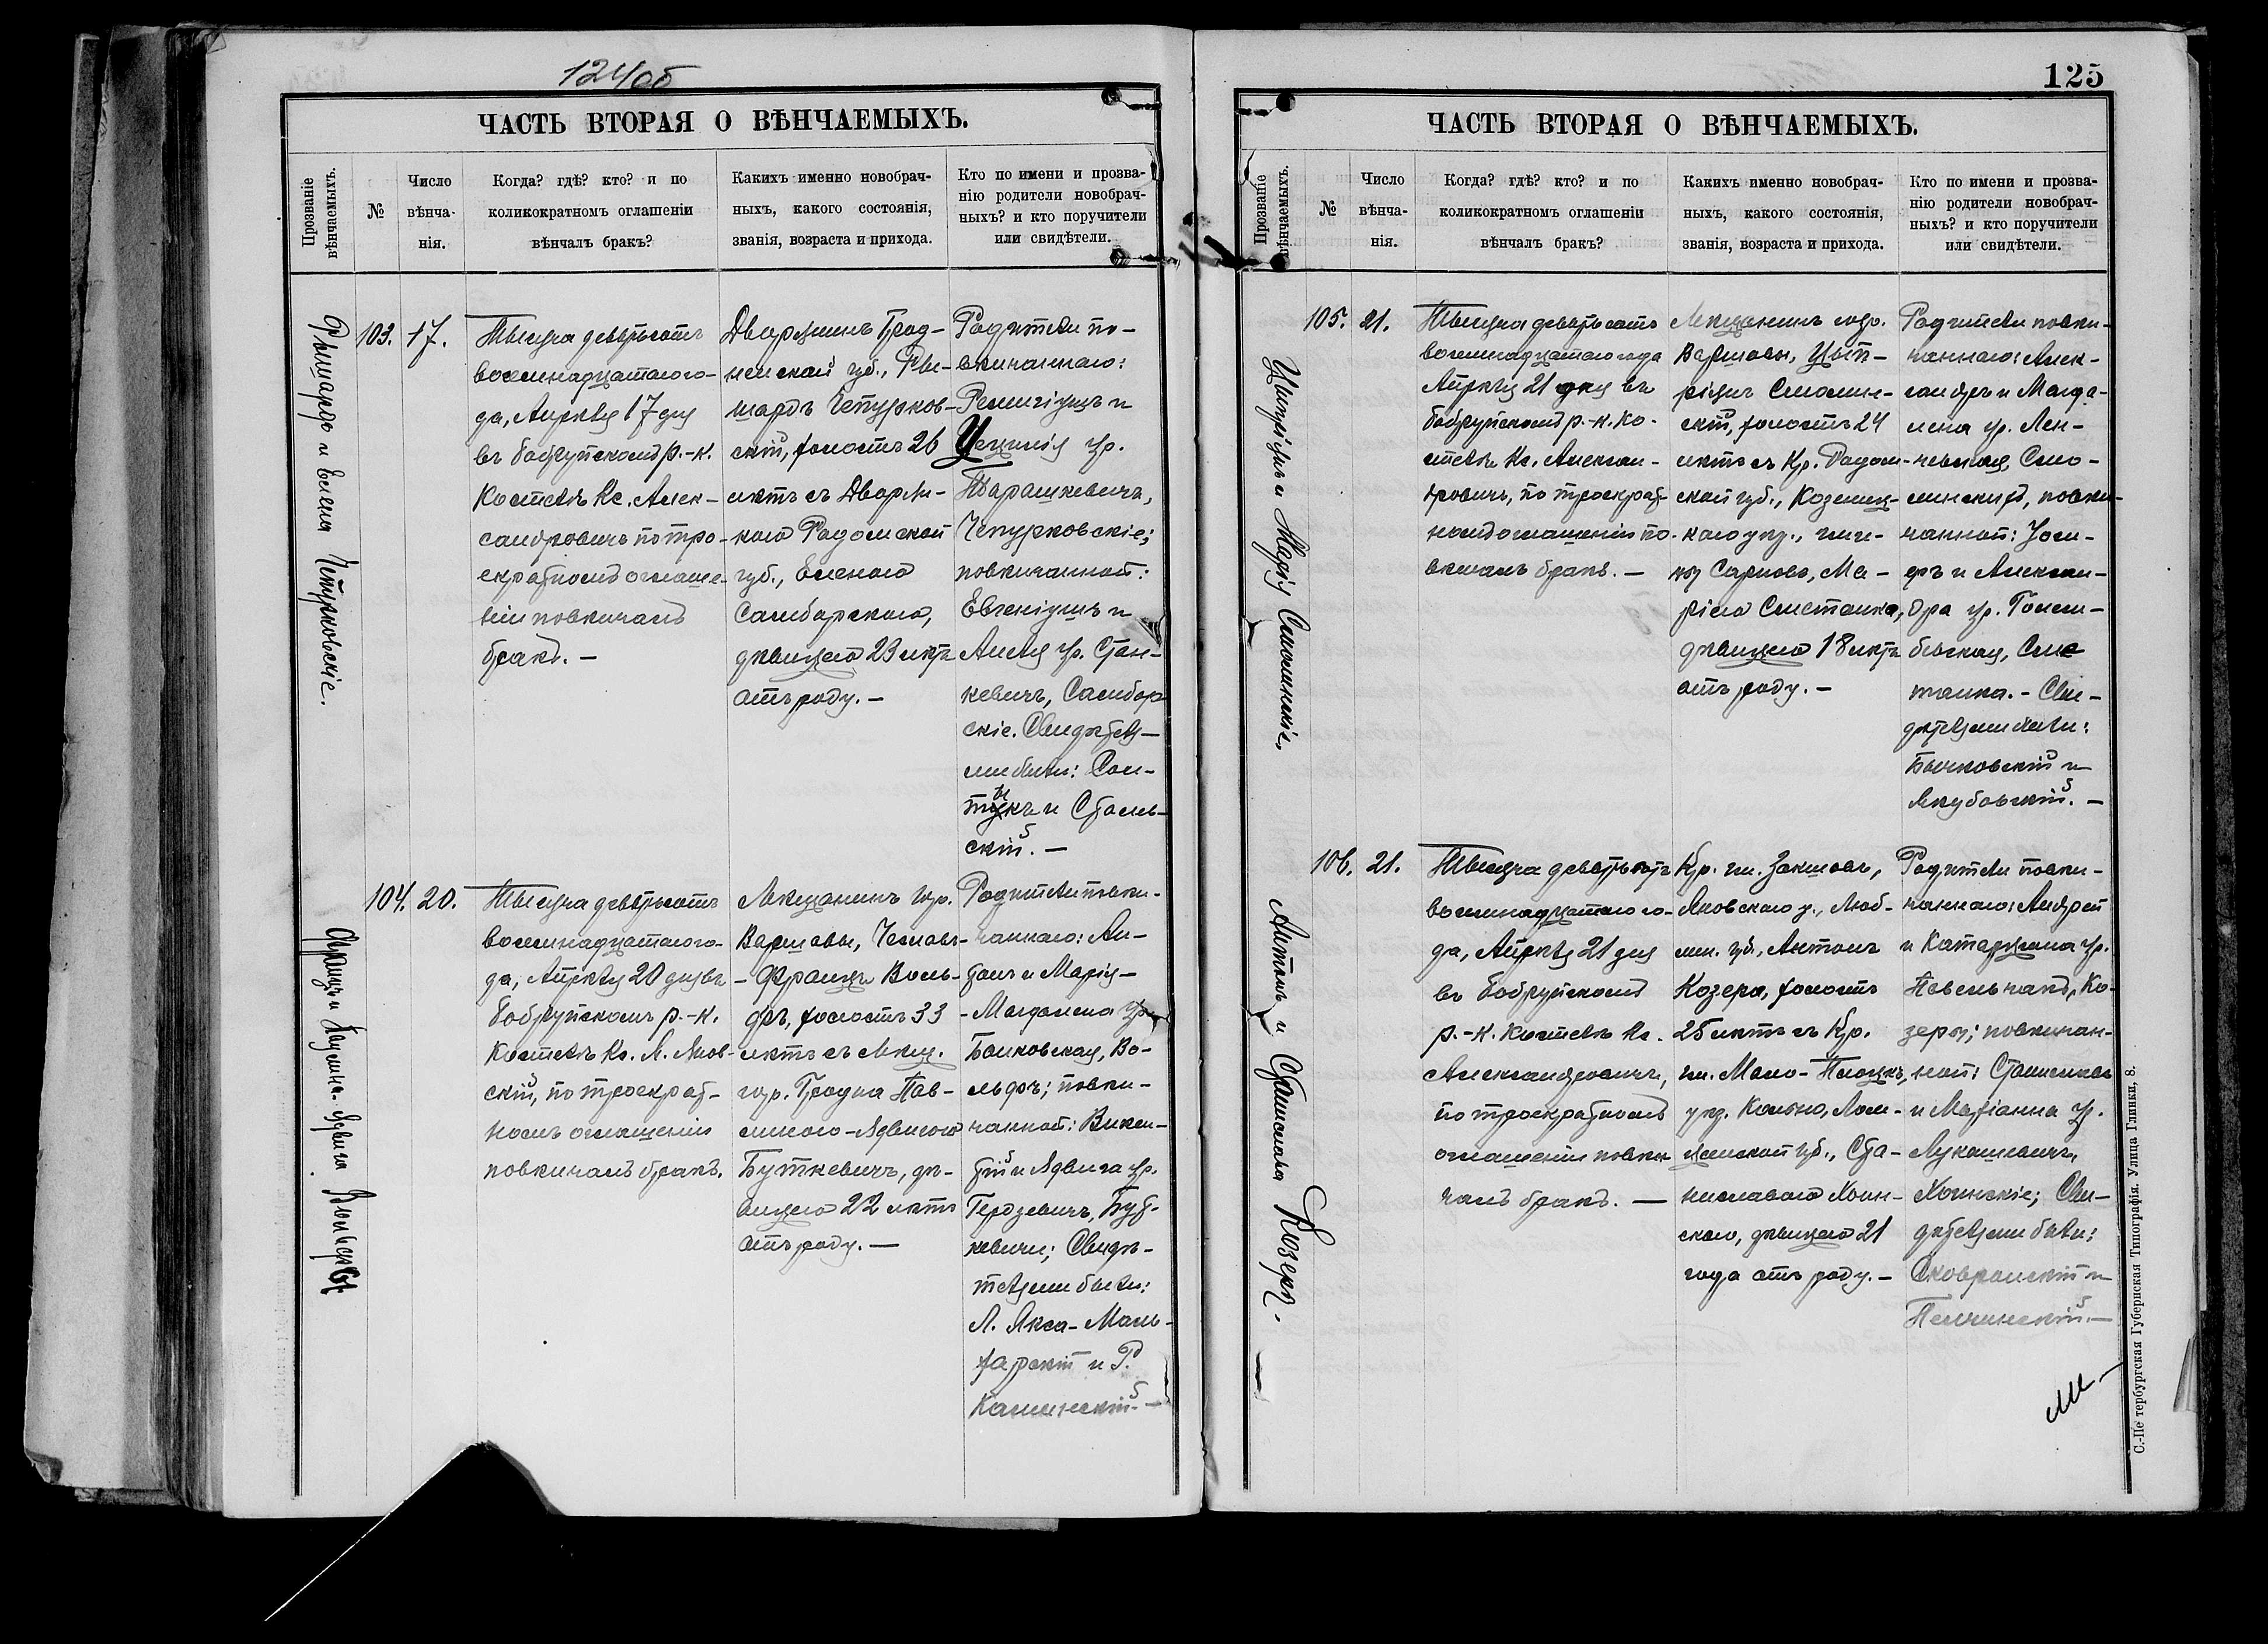 124об
ЧАСТЬ ВТОРАЯ О ВѢНЧАЕМЫХЪ.
Прозваніе
вѣнчаемыхъ.
№
Число
вѣнча-
нія.
Когда? гдѣ? кто? и по
коликократномъ оглашеніи
вѣнчалъ бракъ?
Какихъ именно новобрач-
ныхъ, какого состоянія,
званія, возраста и прихода.
Кто по имени и прозва-
нію родители новобрач-
ныхъ? и кто поручители
или свидѣтели.
Рышардъ и Елена Чепурковскіе.
103. 17.
Тысяча девятьсотъ
восемнадцатаго го-
да, Апрѣля 17 дня
въ Бобруйскомъ р.-к.
Костелѣ Кс. Алек-
сандровичъ по тро-
екратномъ оглаше-
ніи повѣнчалъ
бракъ. —
Дворянинъ Грод-
ненской губ., Ры-
шардъ Чепурков-
скій, холостъ 26
лѣтъ съ Дворян-
кою Радомской
губ., Еленою
Самборскою,
дѣвицею 23 лѣтъ
отъ роду. —
Родители по-
вѣнчаннаго:
Ремигіушъ и
Цецилія ур.
Тарашкевичъ,
Чепурковскіе;
повѣнчанной:
Евгеніушъ и
Амелія ур. Стан-
кевичъ, Самбор
скіе. Свидѣтеля-
ми были:
и Столь-
скій. —
Францъ и Павлина-Ядвига Вольфъ
104. 20.
Тысяча девятьсотъ
восемнадцатаго го-
да, Апрѣля 20 дня въ
Бобруйскомъ р.-к.
Костелѣ Кс. Л. Янов-
скій, по троекрат-
номъ оглашеніи
повѣнчалъ бракъ.
Мѣщанинъ гор.
Варшавы, Чеславъ-
- Францъ Воль-
фъ, холостъ 33
лѣтъ съ Мѣщ.
гор. Гродна Пав-
линою-Ядвигою
Буткевичъ, дѣ-
вицею 22 лѣтъ
отъ роду. —
Родители повѣн-
чаннаго: Ан-
тонъ и Марія-
- Магдалена ур.
Банковская, Во-
льфъ; повѣн-
чанной: Викен-
тій и Ядвига ур.
Гердзевичъ, Бут-
кевичи; Свидѣ-
телями были:
Л. Якса-Маль-
харскій и Р.
Каминскій. —
125
ЧАСТЬ ВТОРАЯ О ВѢНЧАЕМЫХЪ.
Прозваніе
вѣнчаемыхъ.
№
Число
вѣнча-
нія.
Когда? гдѣ? кто? и по
коликократномъ оглашеніи
вѣнчалъ бракъ?
Какихъ именно новобрач-
ныхъ, какого состоянія,
званія, возраста и прихода.
Кто по имени и прозва-
нію родители новобрач-
ныхъ? и кто поручители
или свидѣтели.
Ципріянъ и Марія Смоминскіе.
105. 21.
Тысяча девятьсотъ
восемнадцатаго года
Апрѣля 21 дня въ
Бобруйскомъ р.-к. Ко-
стелѣ Кс. Алексан-
дровичъ, по троекрат-
номъ оглашеніи по-
вѣнчалъ бракъ. —
Мѣщанинъ гор.
Варшавы, Цып-
ріянъ Смомин-
скій, холостъ 24
лѣтъ съ Кр. Радом-
ской губ., Козениц-
каго уѣз., гми-
ны Сарново, Ма-
ріею Сметанка,
дѣвицею 18 лѣтъ
отъ роду. —
Родители повѣн-
чаннаго: Алек-
сандръ и Магда-
лена ур. Лен-
чевская, Смо-
минскихъ, повѣн-
чанной: Іоси-
фъ и Алексан-
дра ур. Голем-
бьевская, Сме
танка. - Сви-
дѣтелями были:
Бычковскій и
Якубовскій. —
Антонъ и Станислава Козера.
106. 21.
Тысяча девятьсотъ
восемнадцатаго го-
да, Апрѣля 21 дня
въ Бобруйскомъ
р.-к. Костелѣ Кс.
Александровичъ,
по троекратномъ
оглашеніи повѣн
чалъ бракъ. —
Кр. гм. Закшовъ,
Яновскаго у., Люб-
лин. губ., Антонъ
Козера, холостъ
25 лѣтъ съ Кр.
гм. Мало-Плоцкъ,
уѣзд. Кольно, Лом-
жинской губ., Ста-
ниславою Хоин-
скою, дѣвицею 21
года отъ роду. —
Родители повѣн-
чаннаго: Андрей
и Катаржина ур.
Козеры; повѣнчан-
ной: Станиславъ
и Маріанна ур.
Лукашевичъ,
Хоинскіе; Сви-
дѣтелями были:
Сковронскій и
Пенчинскій. —
С.-Петербургская Губернская Типографія. Улица Глинки, 8.